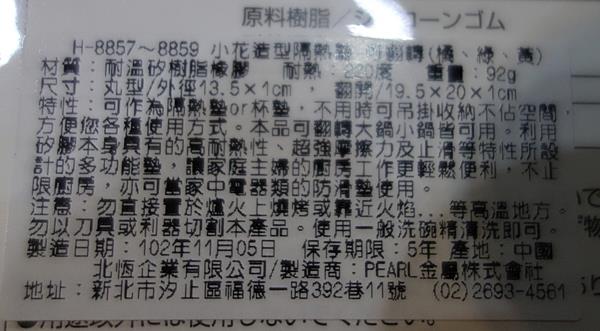 原料樹脂/シリコーンゴム
H-8857~8859 小花造型隔熱墊 可翻轉(橘、綠、黃)
材質:耐溫矽樹脂橡膠 耐熱:220度 重量:92g
尺寸:丸型/外徑13.5×1cm, 翻開/19.5×20×1cm
特性:可作為隔熱墊or杯墊,不用時可吊掛收納不佔空間,
方便您各種使用方式。本品可翻轉大鍋小鍋皆可用。利用
矽膠本身具有的高耐熱性、超強摩擦力及止滑等特性所設
計的多功能墊,讓家庭主婦的廚房工作更輕鬆便利,不止
限廚房,亦可當家中電器類的防滑墊使用。
注意:勿直接置於爐火上燒烤或靠近火焰...等高溫地方。
勿以刀具或利器切割本產品。使用一般洗碗精清洗即可。
製造日期:102年11月05日 保存期限:5年 產地:中國
北恆企業有限公司/製造商:PEARL金屬株式會社
地址:新北市汐止區福德一路392巷11號 (02)2693-4561